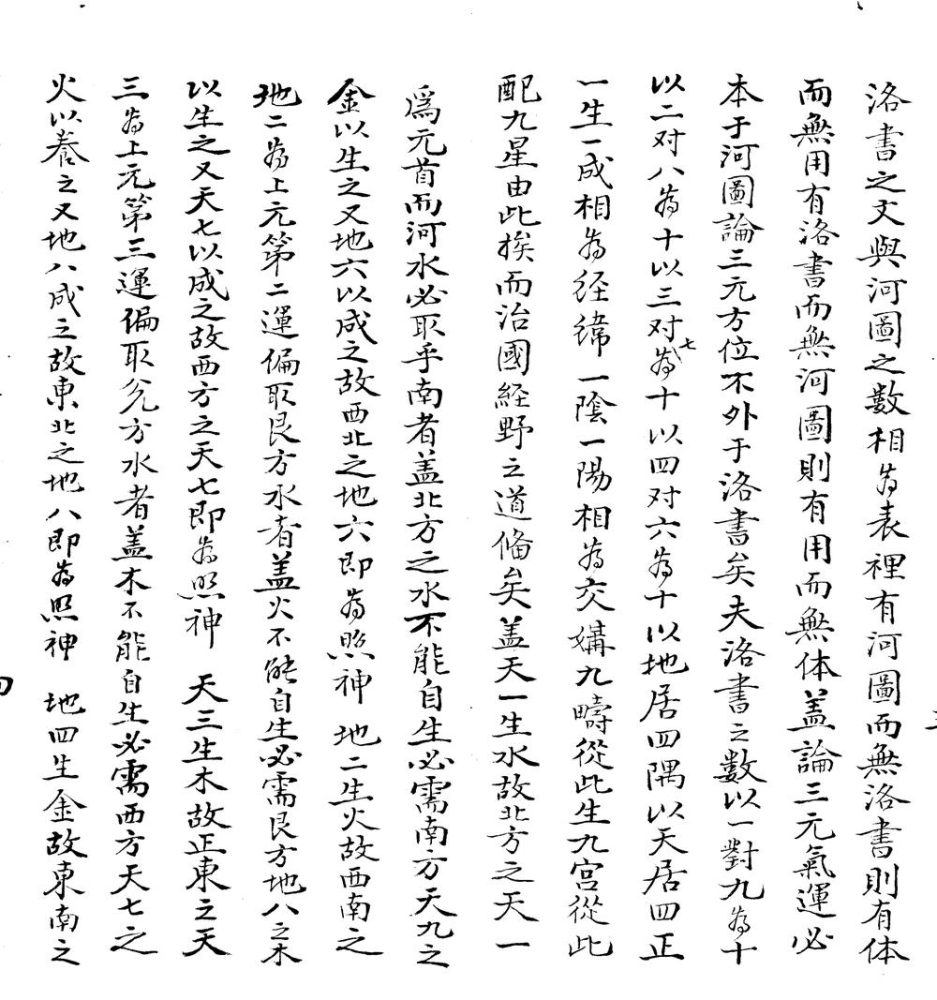 洛書之文與河圖之數相為表裡有河圖而無洛書則有体
而無用有洛書而無河圖則有用而無体盖論三元氣運必
本于河圖論三元方位不外于洛書矣夫洛書之數以一對九為十
以二对八為十以三对七為十以四对六為十以地居四隅以天居四正
一生一成相為経緯一陰一陽相為交媾九疇從此生九宮從此
配九星由此挨而治國経野之道俻矣盖天一生水故北方之天一
爲元首而河水必取乎南者盖北方之水不能自生必需南方天九之
金以生之又地六以成之故西北之地六即為照神 地二生火故西南之
地二為上元第二運偏取艮方水者盖火不能自生必需艮方地八之木
以生之又天七以成之故西方之天七即為照神 天三生木故正東之天
三為上元第三運偏取兊方水者盖木不能自生必需西方天七之
火以養之又地八成之故東北之地八即為照神 地四生金故東南之